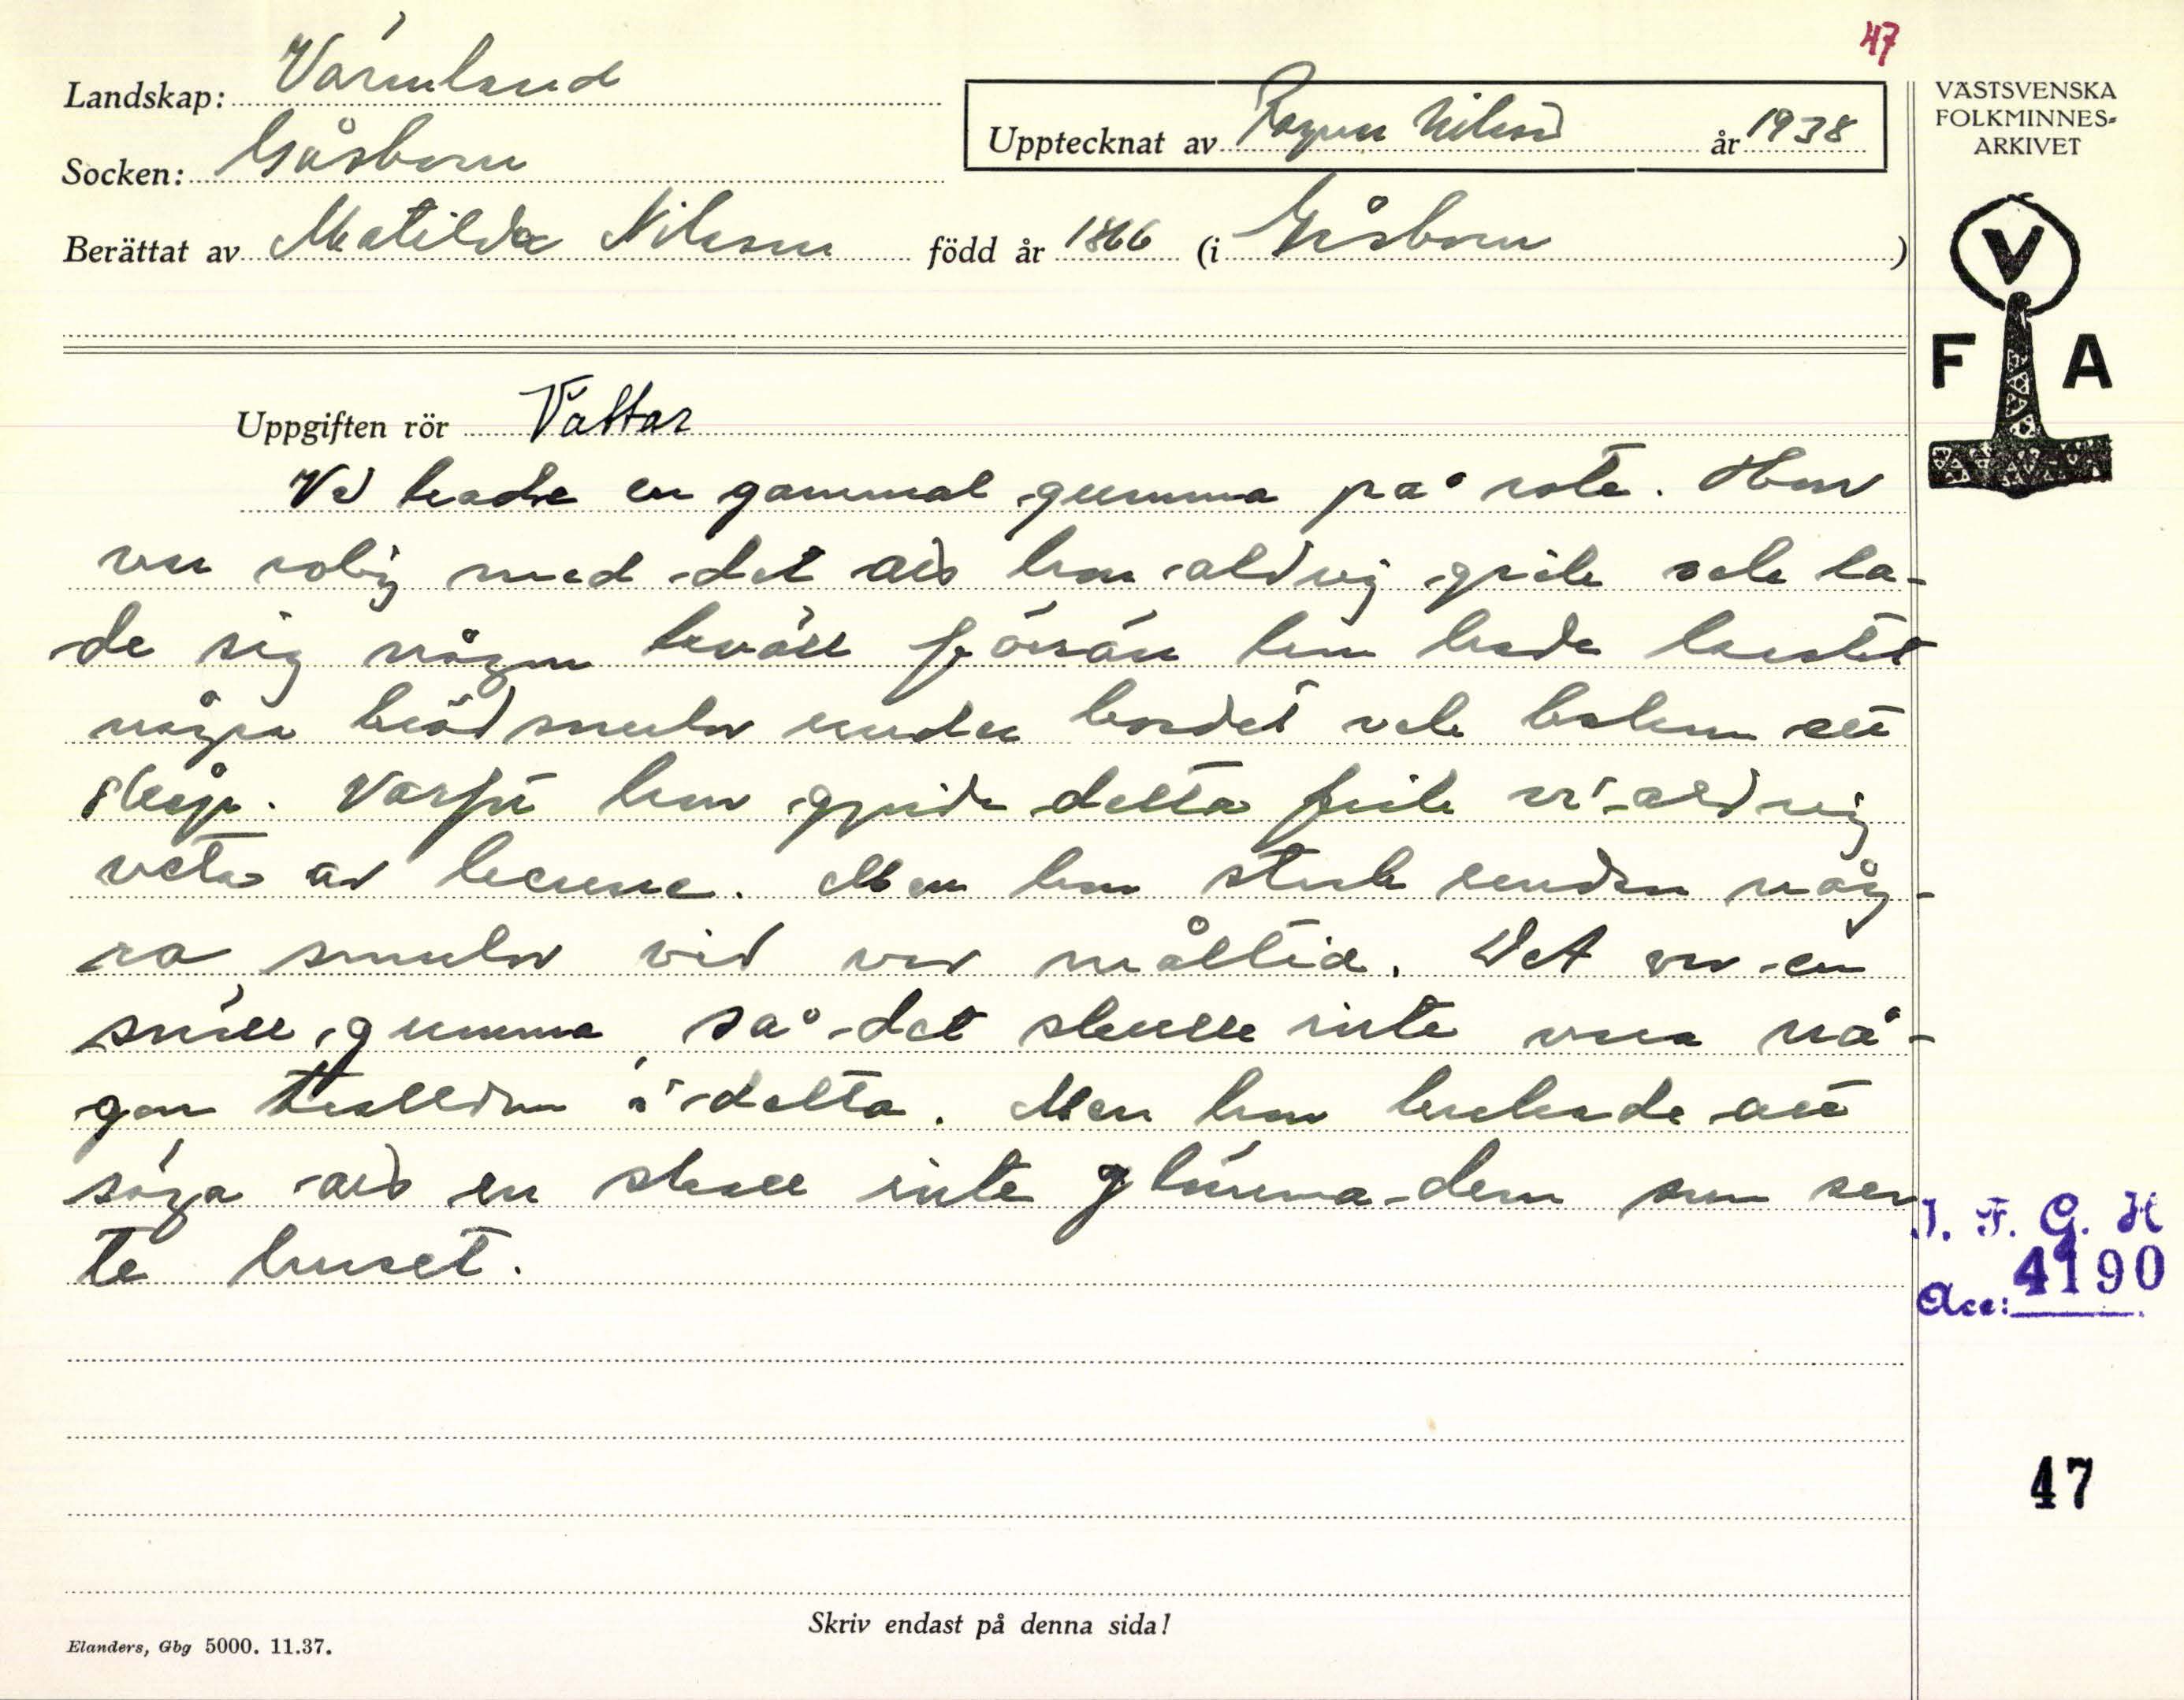 47
Landskap: Värmland
Socken: Gåsborn
Upptecknat av Ragnar Nilsson år 1938
Berättat av Matilda Nilsson född år 1866 (i Gåsborn)
VÄSTSVENSKA
FOLKMINNES-
ARKIVET
V
F A
Uppgiften rör Vättar
Vi hade en gammal gumma på rote. Hon
var rolig med det att hon aldrig gick och la-
de sig någon kväll förrän hon hade kastat
några brödsmulor under bordet och bakom ett
skåp. Varför hon gjorde detta fick vi aldrig
veta av henne. Men hon stack undan någ-
ra smulor vid var måltid. Det var en
snäll gumma, så det skulle inte vara nå-
gon trolldom i detta. Men hon brukade att
säga att en skall inte glömma dem som ser
te huset.
I. F. G. H
Acc: 4190
47
Skriv endast på denna sida!
Elanders, Gbg 5000. 11.37.